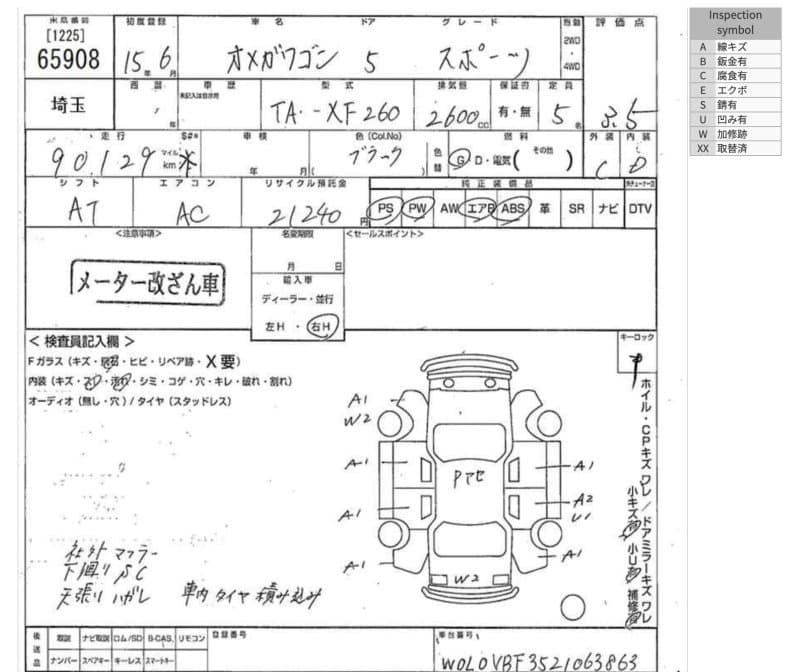 出品番号 初度登録 車名 ドア グレード 駆動 評価点
[1225]
65908 15年 6月 オメガワゴン 5 スポーツ 2WD・4WD
埼玉 車歴 型式 排気量 保証書 定員
TA-XF260 2600cc 有・無 5名 3.5
走行 $#* 車検 色(Col.No) 色替 燃料 外装 内装
90,129 マイル km * 年 月 ブラック G・D・電気( その他 ) C D
シフト エアコン リサイクル預託金 純正装備品
AT AC 21240円 PS PW AW エアB ABS 革 SR ナビ DTV
<注意事項> 名変期限 <セールスポイント>
月 日
メーター改ざん車
輸入車
ディーラー・並行
左H・右H
<検査員記入欄> キーロック
Fガラス(キズ・飛石・ヒビ・リペア跡・X要)
内装(キズ・スレ・汚れ・シミ・コゲ・穴・キレ・破れ・割れ)
オーディオ(無し・穴)/タイヤ(スタッドレス)
ホイル・CPキズワレ/ドアミラーキズワレ
小キズ有 小U有 補修有
A1
W2
A1 A1
Pアセ
A1 A2
U1
A1 A1
W2
社外マフラー
下廻りSC
天張りハガレ 車内タイヤ積み込み
後送品 取説 ナビ取説 ロム/SD B-CAS リモコン 登録番号 車台番号
ナンバー スペアキー キーレス スマートキー W0L0VBF3521063863
Inspection
symbol
A 線キズ
B 鈑金有
C 腐食有
E エクボ
S 錆有
U 凹み有
W 加修跡
XX 取替済